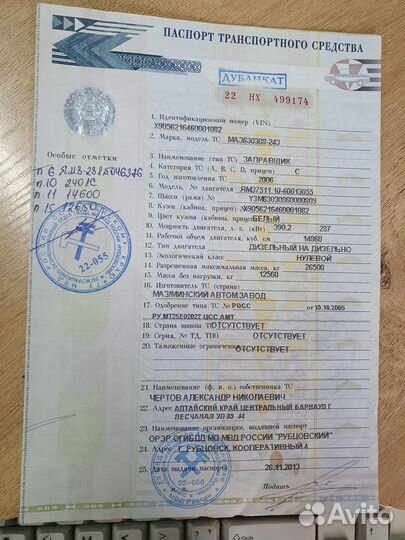 ПАСПОРТ ТРАНСПОРТНОГО СРЕДСТВА
ДУБЛИКАТ
22 НХ 499174
1. Идентификационный номер (VIN) X9056216460001082
2. Марка, модель ТС МАЗ630308-243
3. Наименование (тип ТС) ЗАПРАВЩИК
4. Категория ТС (А, В, С, D, прицеп) С
5. Год изготовления ТС 2006
6. Модель, № двигателя ЯМ37511.10-60013055
7. Шасси (рама) № Y3M63030860000809
8. Кузов (кабина, прицеп) № X9056216460001082
9. Цвет кузова (кабины, прицепа) БЕЛЫЙ
10. Мощность двигателя, л. с. (кВт) 390.2 287
11. Рабочий объем двигателя, куб. см 14860
12. Тип двигателя ДИЗЕЛЬНЫЙ НА ДИЗЕЛЬНО
13. Экологический класс НУЛЕВОЙ
14. Разрешенная максимальная масса, кг 26500
15. Масса без нагрузки, кг 12560
16. Изготовитель ТС (страна)
МАЗМИНСКИЙ АВТОМЗАВОД
17. Одобрение типа ТС № РОСС от 10.10.2005
РУ.МТ25Е02022 ЦСС АМТ
18. Страна вывоза ТС ОТСУТСТВУЕТ
19. Серия, № ТД, ТПО ОТСУТСТВУЕТ
20. Таможенные ограничения ОТСУТСТВУЕТ
21. Наименование (ф. и. о.) собственника ТС
ЧЕРТОВ АЛЕКСАНДР НИКОЛАЕВИЧ
22. Адрес АЛТАЙСКИЙ КРАЙ ЦЕНТРАЛЬНЫЙ БАРНАУЛ Г
ПЕСЧАНАЯ УЛ 89 44
23. Наименование организации, выдавшей паспорт
ОРЭР ОГИБДД МО МВД РОССИИ "РУБЦОВСКИЙ"
24. Адрес Г. РУБЦОВСК, КООПЕРАТИВНЫЙ 4
25. Дата выдачи паспорта 26.11.2013
М. П. Подпись
Особые отметки
п.10 240 ЛС
п.11 14600
22-055
22-056
Avito